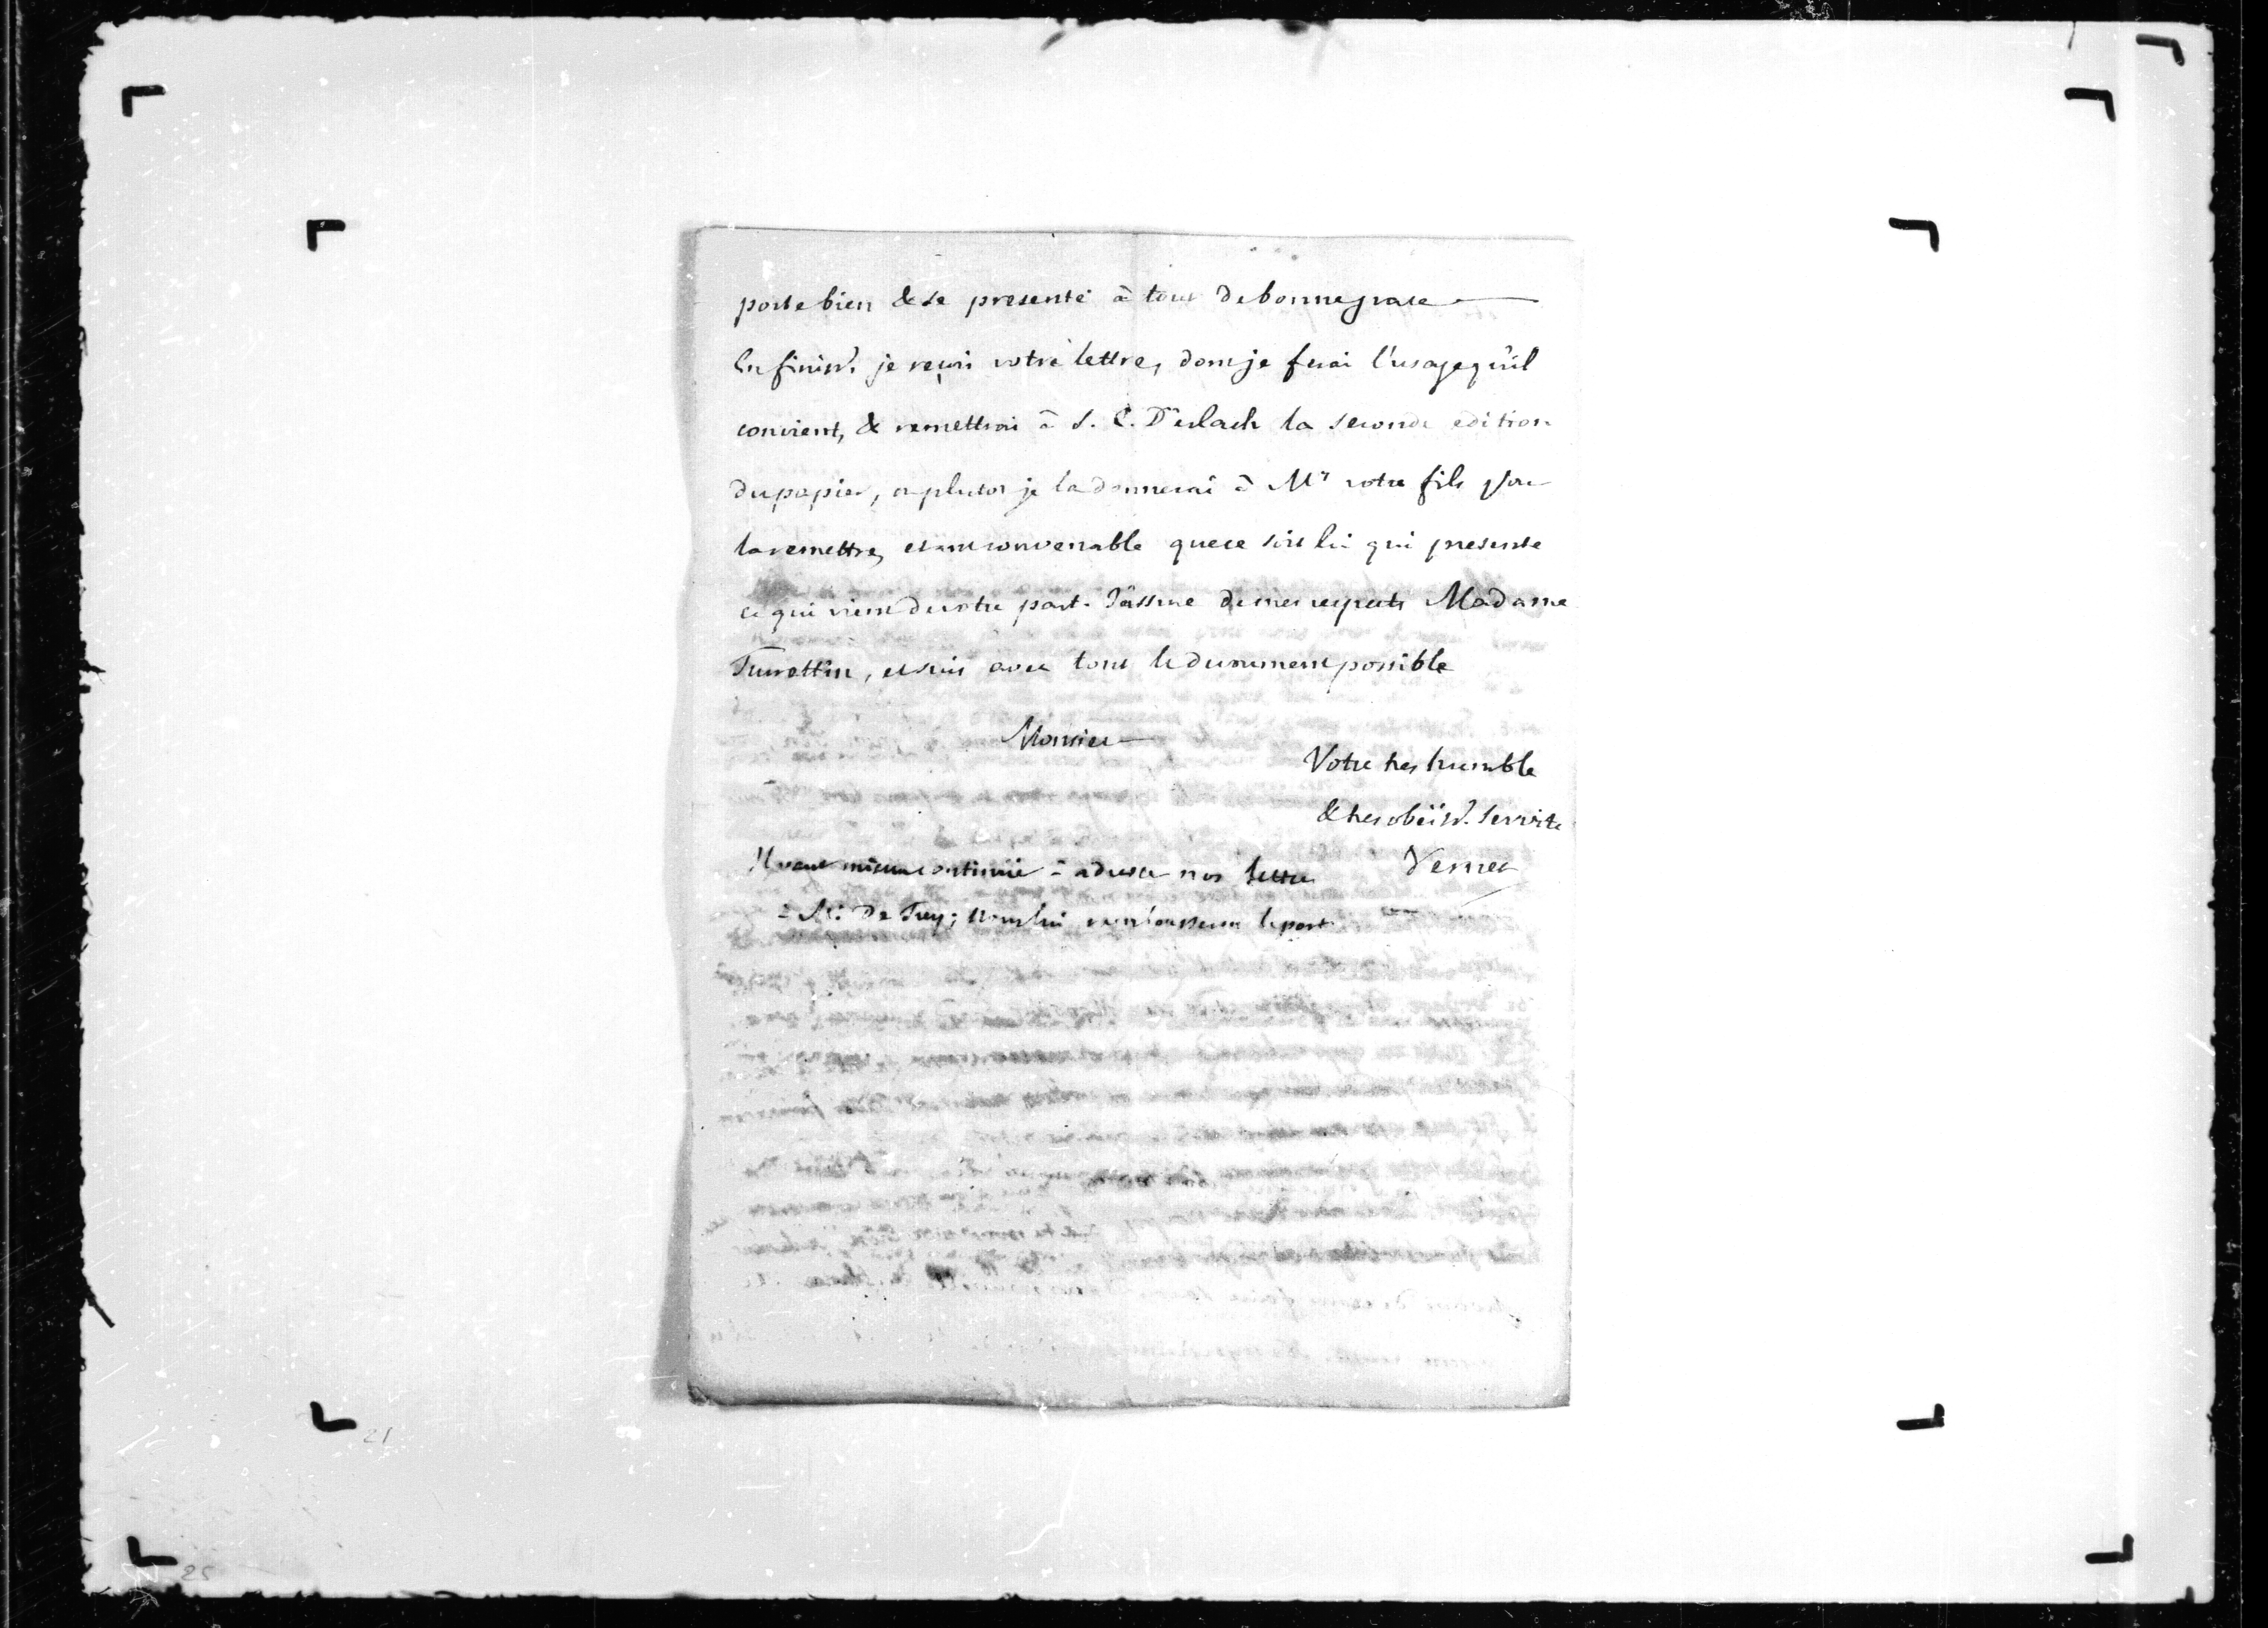 porte bien & se presente à tout de bonne grace
En finiss.t je reçois votre lettre, dont je ferai l'usage qu'il
convient, & remettrai à S. E. D'erlach la seconde edition
du papier, ou plutot je la donnerai à Mr votre fils pour
la remettre, etant convenable que ce soit lui qui presente
ce qui vient de votre part. J'assure de mes respects Madame
Turrettin, et suis avec tout le devouement possible
Monsieur
Votre tres humble
& tres obéiss.t Servite
Vernet
Il vaut mieux continuer à adresser nos lettres
à Mr De Trey; nous lui rembourserons le port
21
25